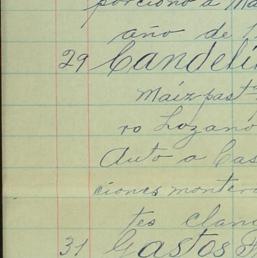 porcionó a Ma
año de
29 Candeli
Maíz past
ro Lozano
Auto a Cas
ciones montera
tes clan
31 Gastos